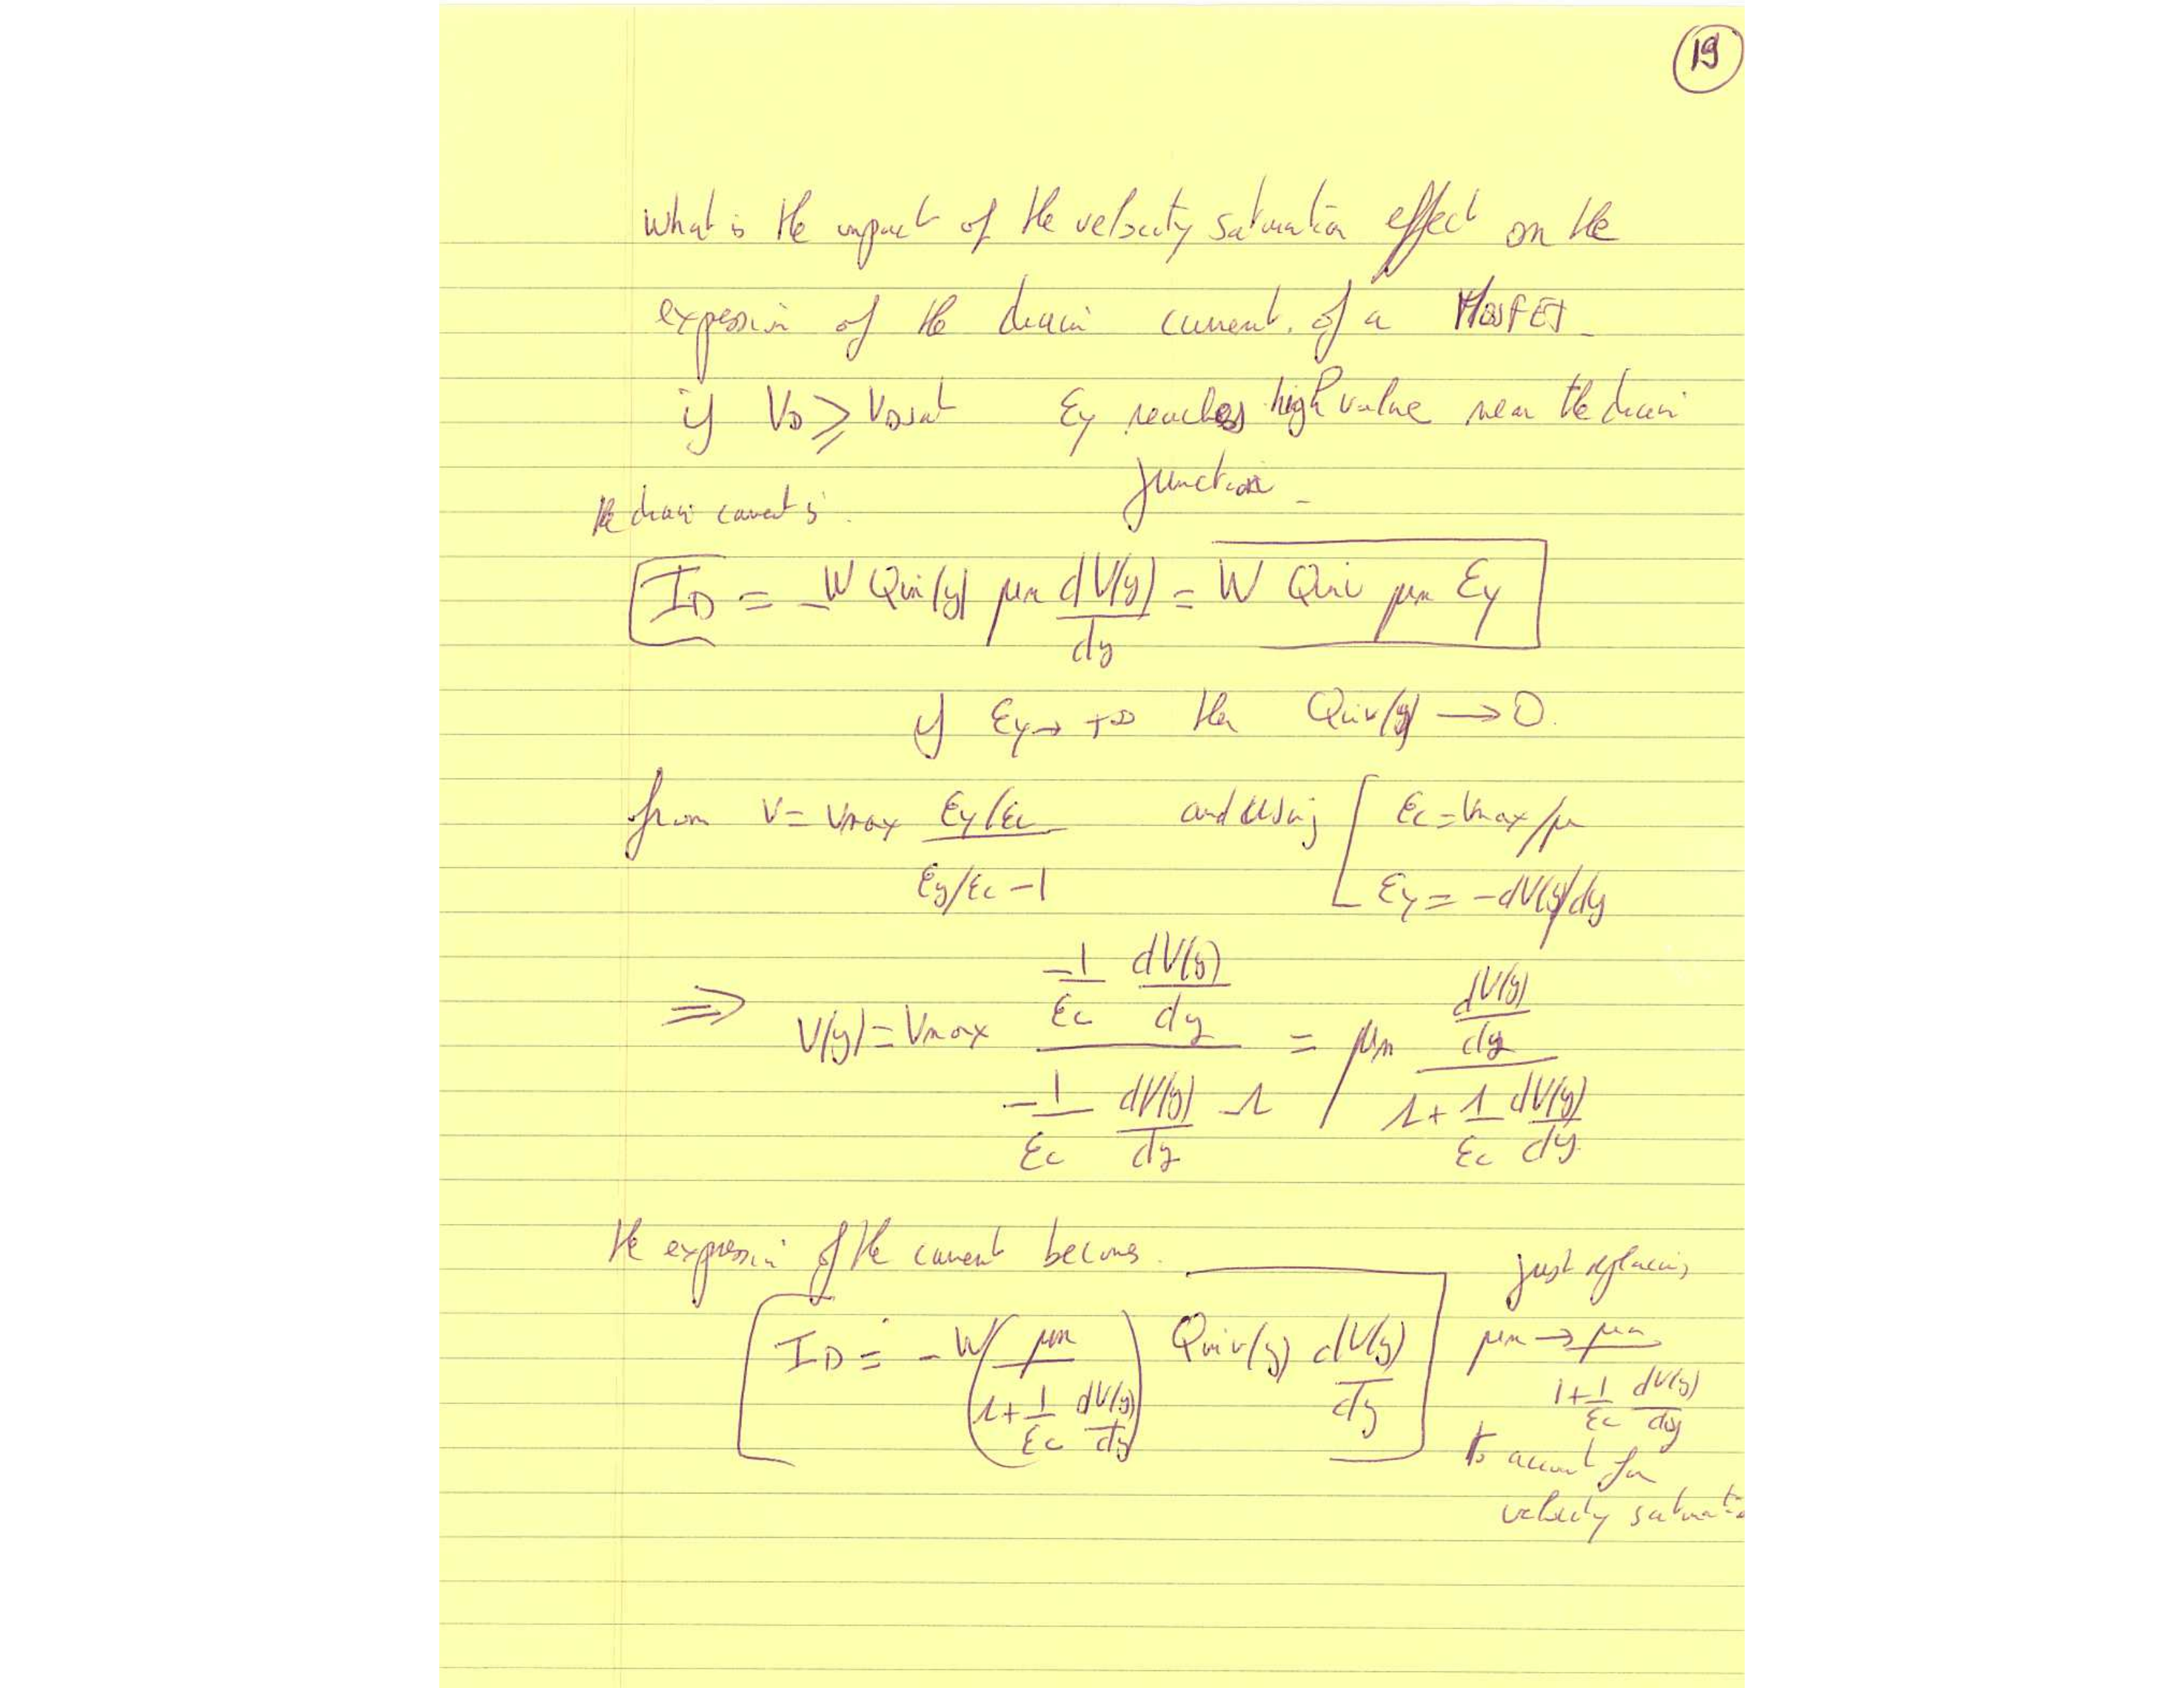 19
What is the impact of the velocity saturation effect on the
expression of the drain current. of a MOSFET_
if VD ⩾ VDsat Ey reaches high value near the drain
junction_
the drain current is.
ID = -W Qinv(y) μn dV(y)/dy = W Qinv μn Ey
if Ey→ +∞ then Qinv(y) → 0.
from V = Vmax (Ey/Ec)/(Ey/Ec -1) and using [ Ec = Vmax/μ
Ey = -dV(y)/dy
⇒ V(y) = Vmax (-1/Ec dV(y)/dy)/(-1/Ec dV(y)/dy -1) = μn (dV(y)/dy)/(1+ 1/Ec dV(y)/dy)
the expression of the current becomes.
ID = -W (μn/(1+ 1/Ec dV(y)/dy)) Qinv(y) dV(y)/dy
just replacing
μn → μn/(1+ 1/Ec dV(y)/dy)
to account for
velocity saturatio